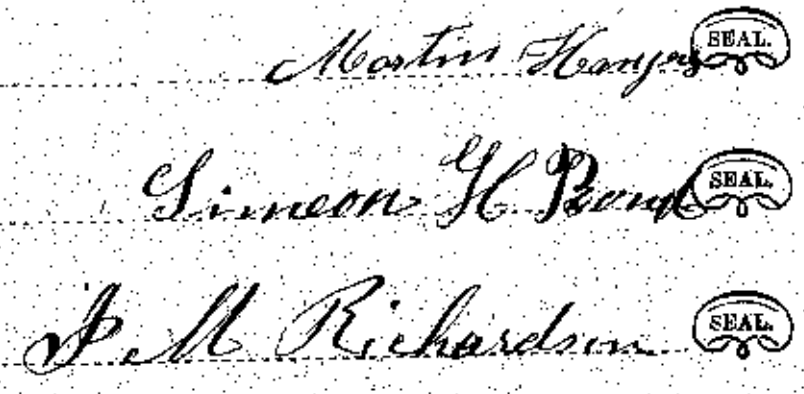 Martin Hanjers SEAL.
Simeon H Bond SEAL.
J M Richardson SEAL.